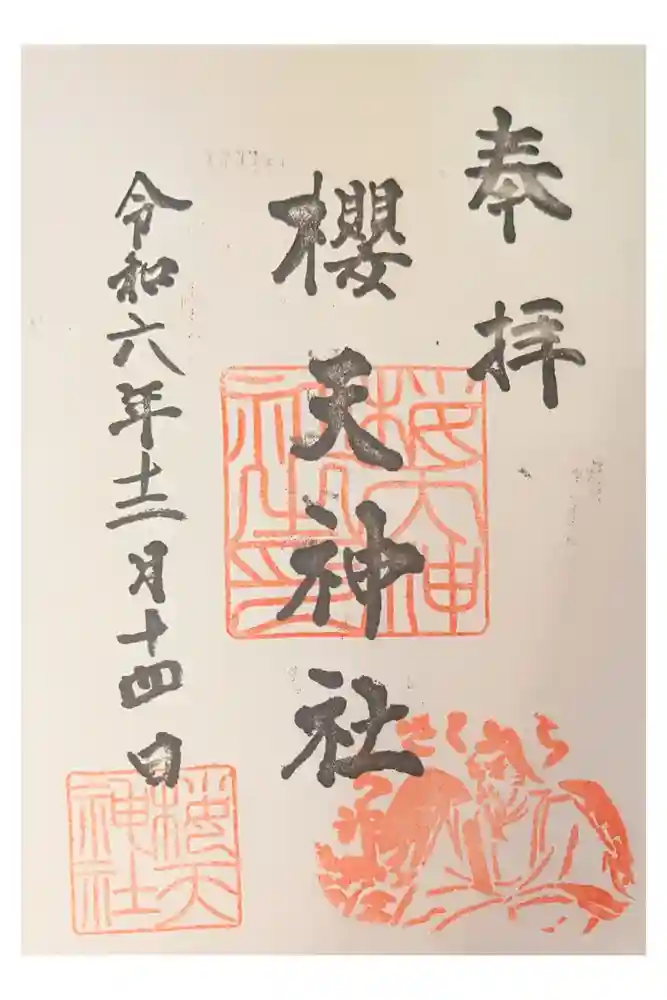 奉拝
櫻天神社
令和六年十二月十四日
桜天神
社之印
さくら
桜天
神社